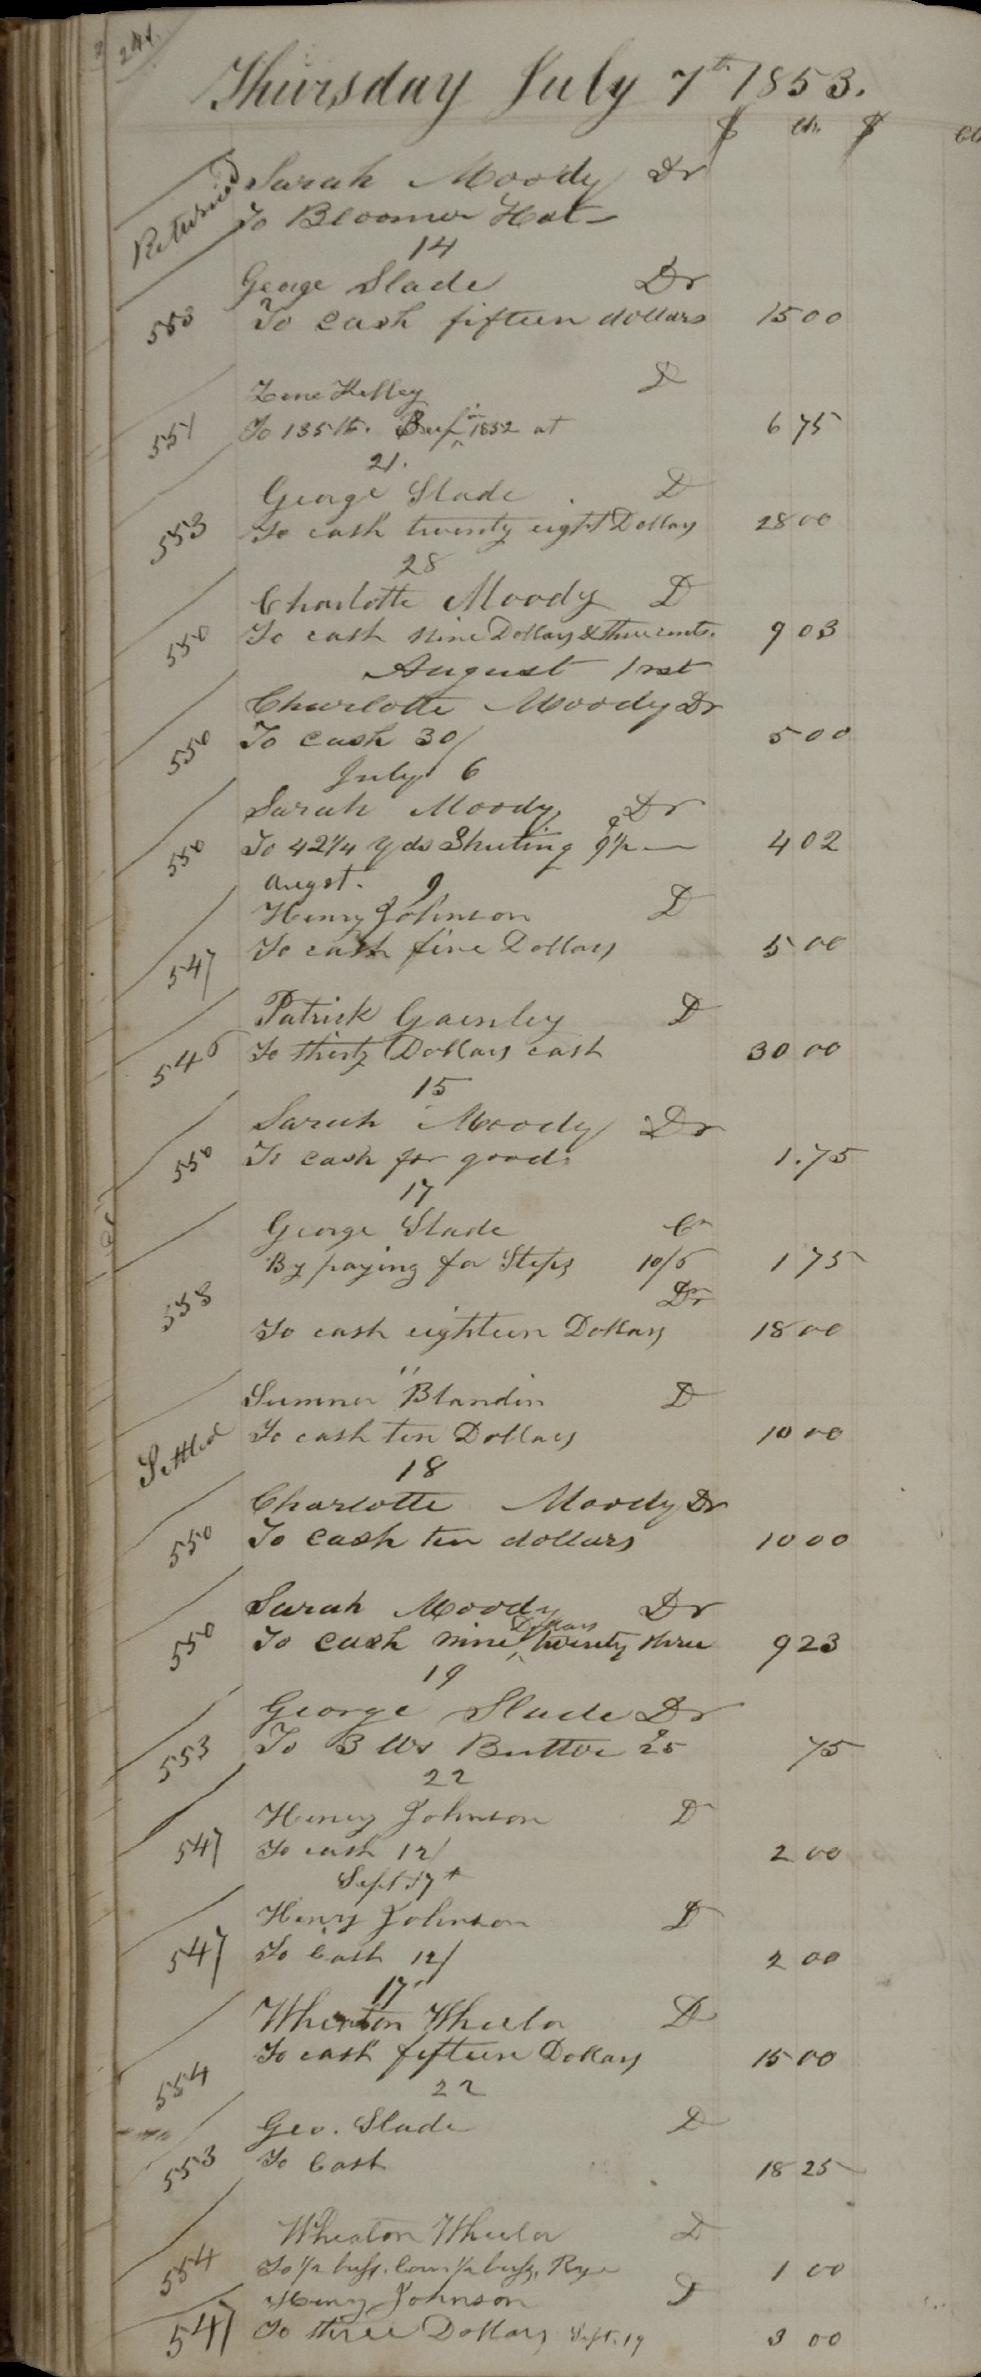 241.
Thursday July 7th 1853.
$ cts. $ cts
Returned Sarah Moody Dr
To Bloomer Hat
14
George Slade Dr
553 To cash fifteen dollars 15 00
Kelley D
551 To 135 lb. Beef in 1852 at 6 75
21.
George Slade D
553 To cash twenty eight Dollars 28 00
28
Charlotte Moody D
550 To cash nine Dollars & three cents. 9 03
August 1rst
Charlotte Moody Dr
550 To cash 30/ 5 00
July 6
Sarah Moody Dr
550 To 42 1/4 yds Sheeting 9 1/2 4 02
Augst. 9
Henry Johnson D
547 To cash five Dollars 5 00
Patrick Gainley D
546 To thirty Dollars cash 30 00
15
Sarah Moody Dr
550 To cash for goods 1.75
17
George Slade Cr
By paying for Steps 10/6 1 75
Dr
553 To cash eighteen Dollars 18 00
"
Sumner Blandin D
Settled To cash ten Dollars 10 00
18
Charlotte Moody Dr
550 To cash ten dollars 10 00
Sarah Moody Dr
550 To cash nine Dollars twenty three 9 23
19
George Slade Dr
553 To 3 lbs Butter 25 75
22
Henry Johnson D
547 To cash 12/ 2 00
Sept. 7th
Henry Johnson D
547 To Cash 12/ 2 00
17"
Wheaton Wheeler D
554 To cash fifteen Dollars 15 00
22
Geo. Slade D
553 To Cash 18 25
Wheaton Wheeler D
554 To 1/2 bush. Corn 1/2 bush. Rye 1 00
Henry Johnson D
547 To three Dollars Sept. 19 3 00